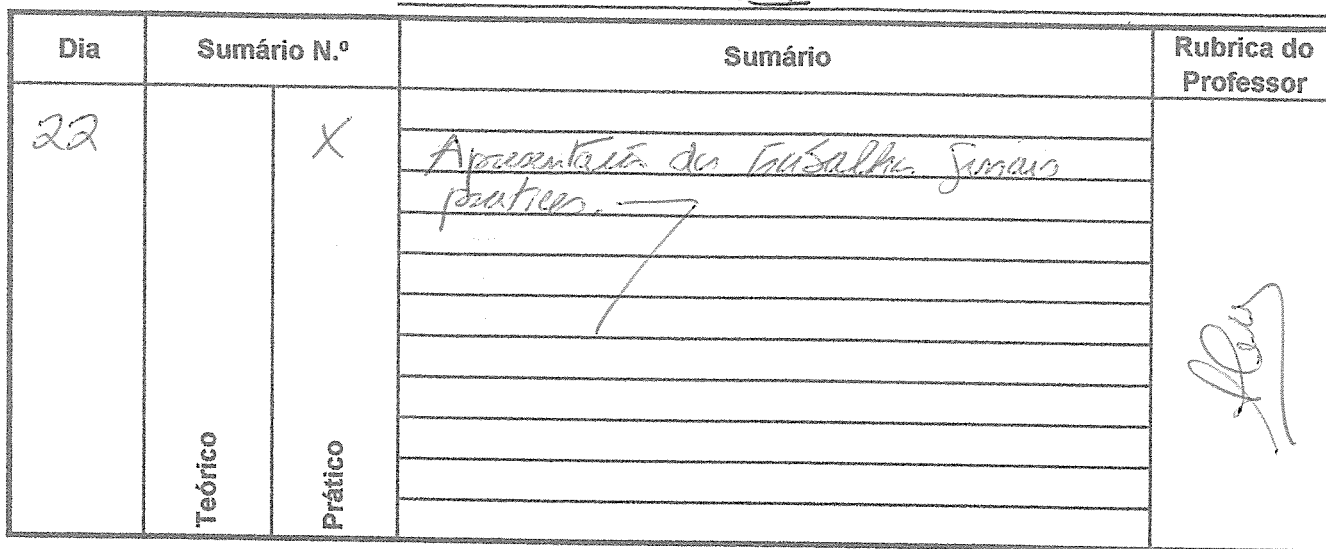 Dia
Sumário N.º
Sumário
Rubrica do
Professor
22
X
Apresentação dos Trabalhos finais
praticos.
Teórico
Prático